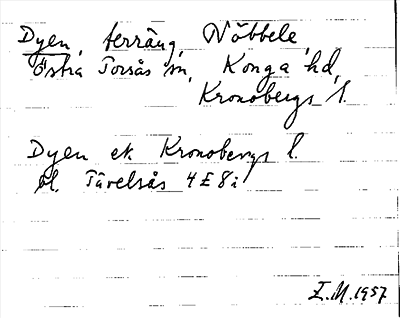 Dyen, terräng, Nöbbele,
Östra Torsås sn, Konga hd,
Kronobergs l.
Dyen ek Kronobergs l.
bl. Tävelsås 4E8i
E.M. 1957